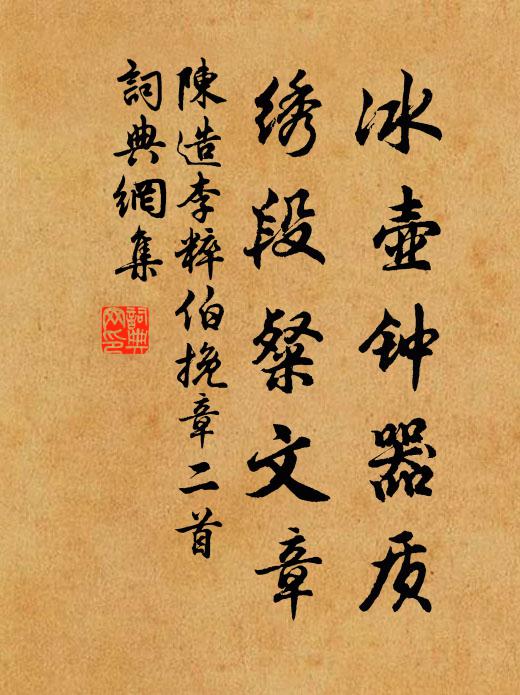 冰壶钟器质
绣段粲文章
陳造李粹伯挽章二首
詞典網集
詞典
网印